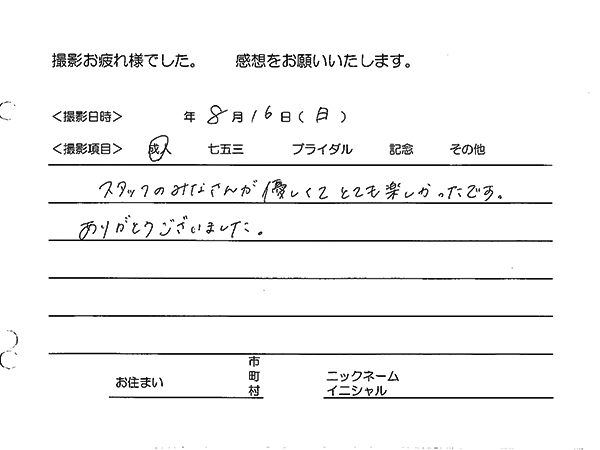 撮影お疲れ様でした。　感想をお願いいたします。
＜撮影日時＞　年 8 月 16 日（日）
＜撮影項目＞　成人　七五三　ブライダル　記念　その他
スタッフのみなさんが優しくてとても楽しかったです。
ありがとうございました。
お住まい　市町村　ニックネーム
イニシャル